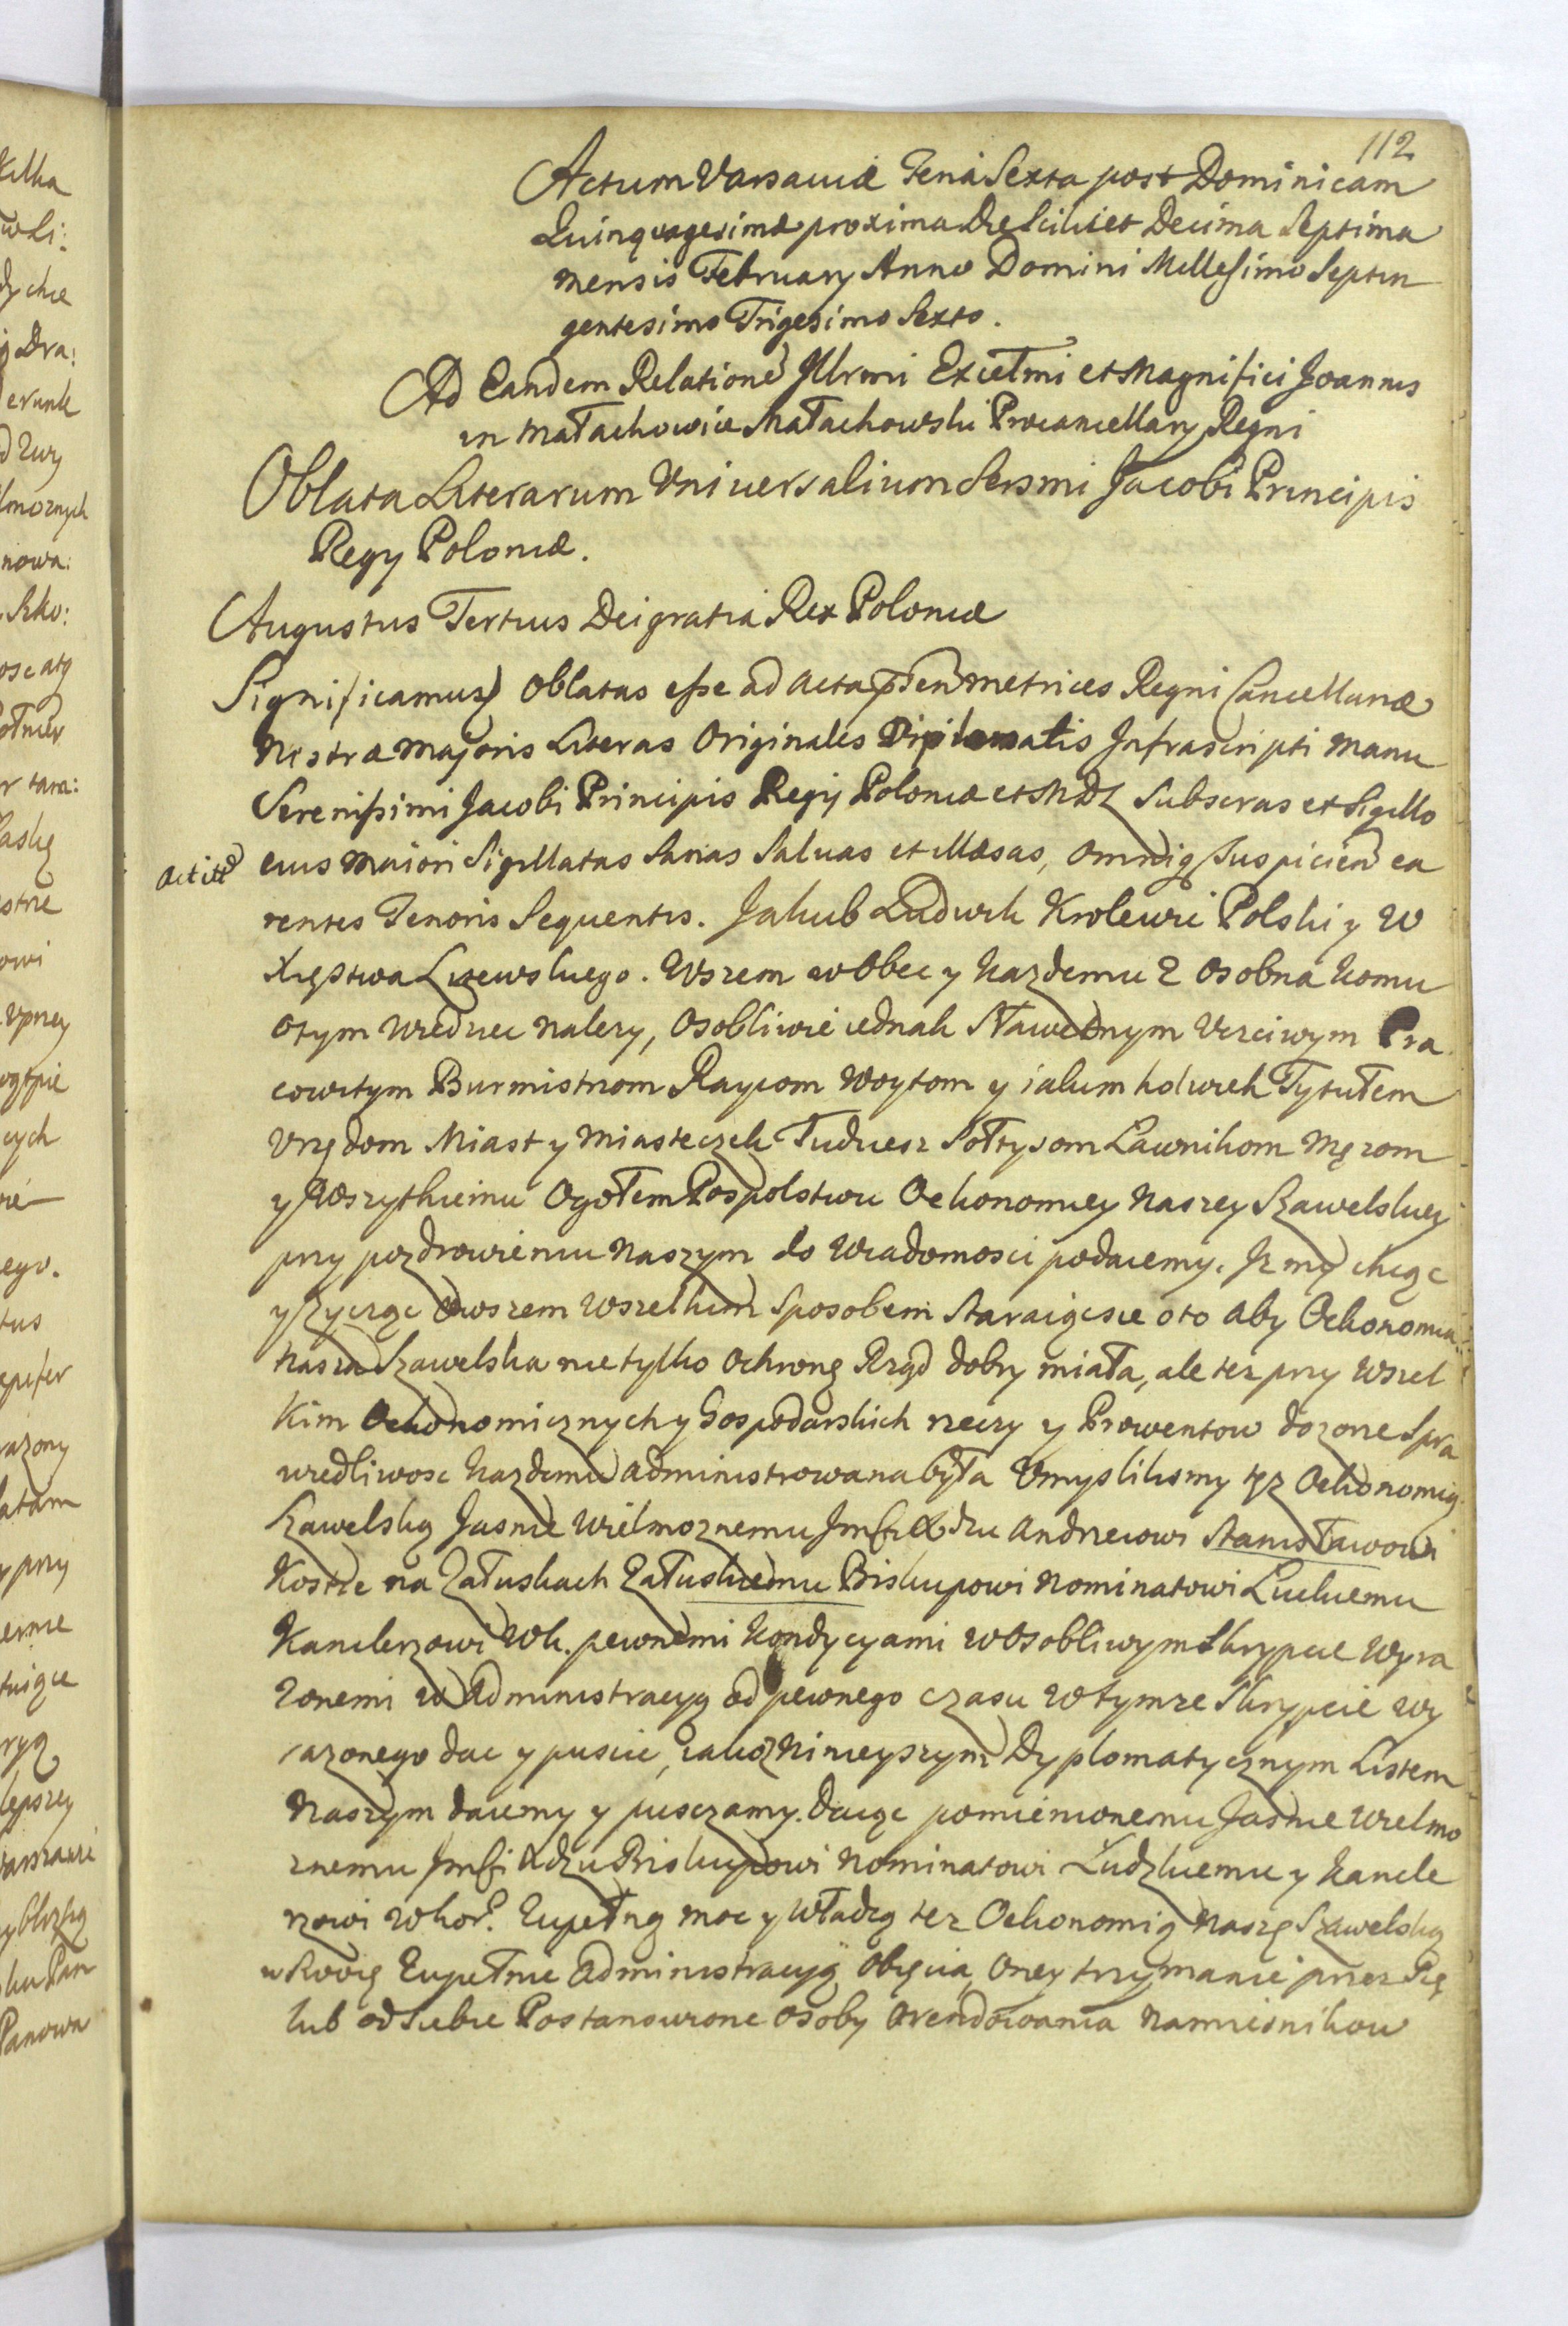 112
Actum Varsaviæ Feriâ Sexta post Dominicam
Quinquagesimæ proxima Die Scilicet Decima Septima
mensis February Anno Domini Millesimo Septin
gentesimo Trigesimo Sexto.
Ad Eandem Relatione Illrmi Excellmi et Magnifici Joannis
in Małachowice Małachowski Procancellary Regni
Oblata Literarum Universalium Sersmi Jacobi Principis
Regy Poloniæ.
Augustus Tertius Dei gratia Rex Poloniæ
Significamus Oblatas esse ad Acta pñ metrices Regni Cancellariæ
Nostræ Majoris Literas Originales Diplomatis Infrascripti manu
Serenissimi Jacobi Principis Regij Poloniæ et MDL Subscras et Sigillo
eius Maiori Sigillatas Sanas Salvas et illæsas, omniq Suspicien ca
rentes Tenoris Sequentis. Jakub Ludwik Krolewic Polski y W
Xięstwa Litewskiego. Wszem wobec y każdemu z Osobna komu
otym wiedziec nalezy, Osobliwie iednak Sławetnym Uczciwym Pra
cowitym Burmistrzom Raycom Woytom y iakimkolwiek Tytułem
Urzędom Miast y Miasteczek Tudziesz Sołtysom Ławnikom Męzom
y Wszytkiemu Ogołem Pospolstwu Oekonomiey Naszey Szawelskiey
przy pozdrowieniu Naszym do Wiadomosci podaiemy. Iz my chcąc
y Zycząc owszem Wszelkim Sposobem Staraiąc sie oto Aby Oekonomia
Nasza Szawelska nie tylko Ochronę Rząd dobry miała, ale tez przy Wszel
kim Oekonomicznych y Gospodarskich rzeczy y Prowentow dozorze Spra
wiedliwosc kazdemu administrowana była Umyslilismy tęz Oekonomią
Szawelską Jasnie Wielmoznemu Jmsci Xdzu Andrzeiowi Stanisławowi
Kostce na Załuskach Załuskiemu Biskupowi Nominatowi Luckiemu
Kanclerzowi Wk. pewnemi kondycyami w Osobliwym Skrypcie Wyra
zonemi w Administracyą od pewnego czasu w tymze Skrypcie Wy
razonego dac y puscic, iakoz Ninieyszym Dyplomatycznym Listem
Naszym daiemy y pusczamy. Daiąc pomienionemu Jasnie Wielmo
znemu Jmsci Xdzu Biskupowi Nominatowi Ludzkiemu y Kancle
rzowi W kor. Zupełną moc y Władzą tez Oekonomią Naszę Szawelską
w Swoię Zupełnie Administracyą Obięcia, Oney trzymanie przez Się
lub od Siebie Postanowione Osoby Arendowania Namiesnikow